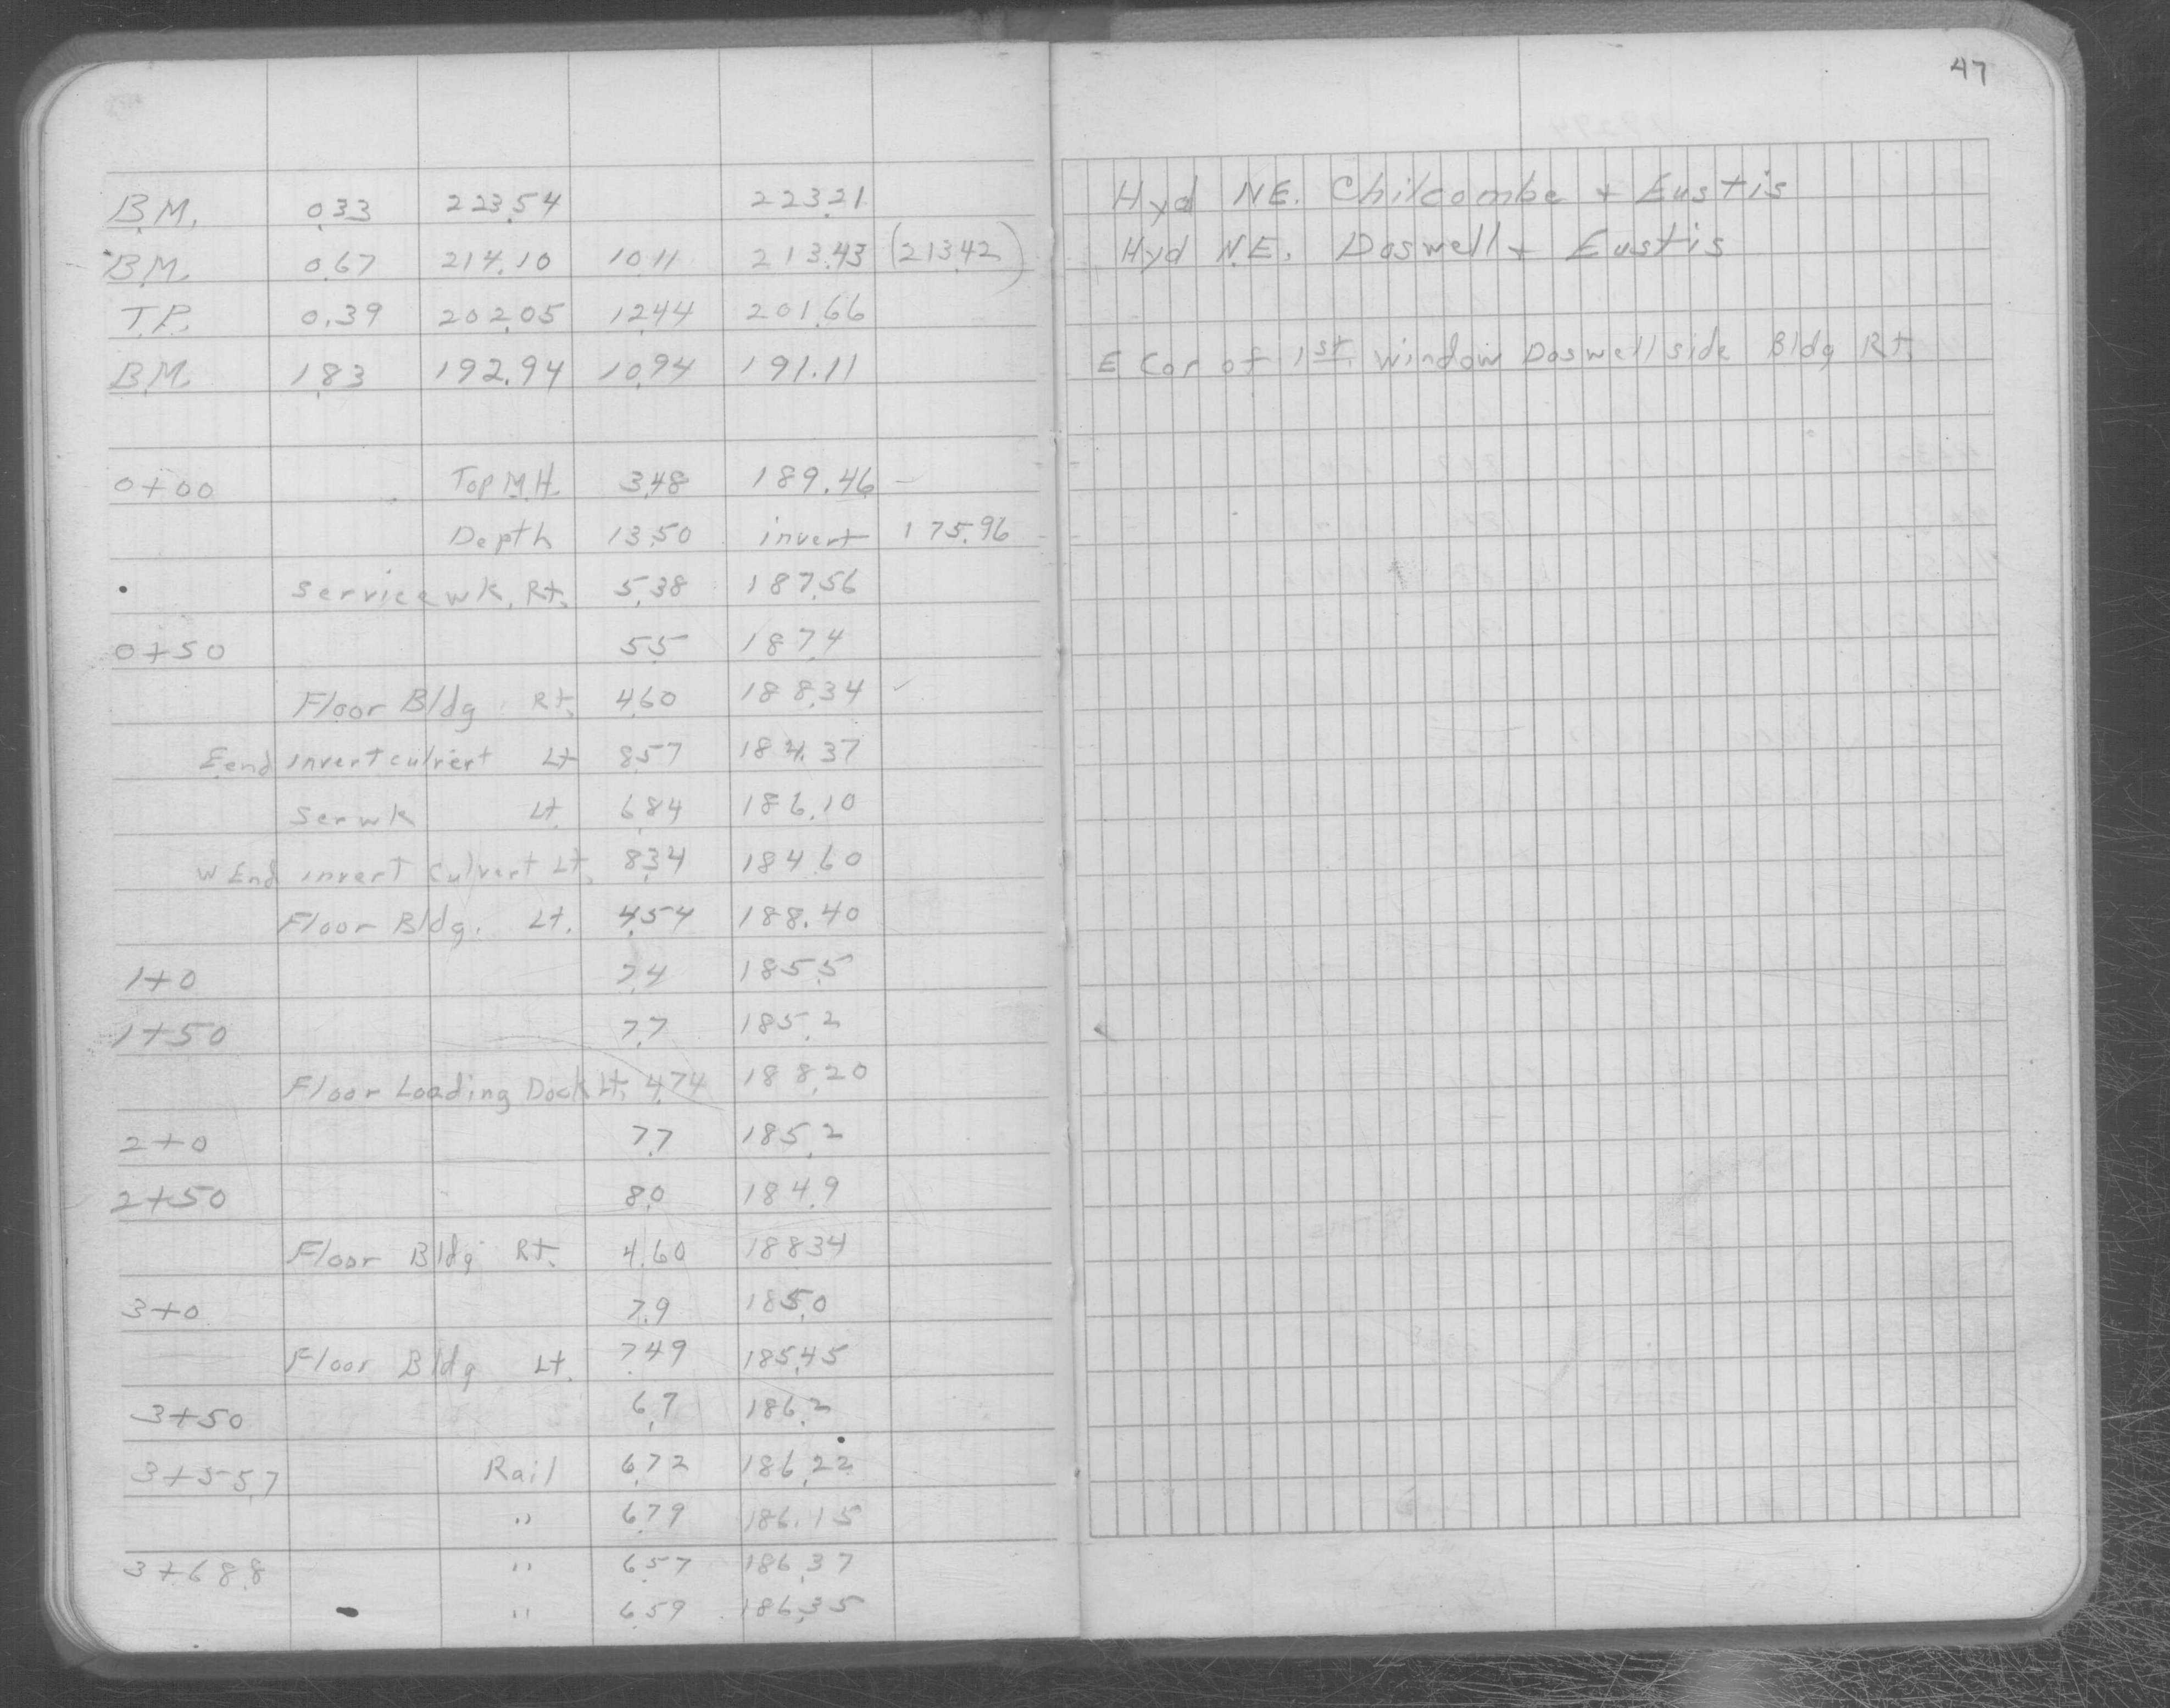 47
B.M. 0.33 223.54 223.21 Hyd NE. Chilcombe + Eustis
B.M. 0.67 214.10 10.11 213.43 (213.42) Hyd N.E. Doswell + Eustis
T.P. 0.39 202.05 12.44 201.66
B.M. 1.83 192.94 10.94 191.11 E Cor of 1st Window Doswell side Bldg Rt.
0+00 Top M.H. 3.48 189.46 -
Depth 13.50 invert 175.96
Service wk. Rt. 5.38 187.56
0+50 5.5 187.4
Floor Bldg Rt. 4.60 188.34 ✓
E end invert culvert Lt 8.57 184.37
Ser wk Lt. 6.84 186.10
W End invert Culvert Lt. 8.34 184.60
Floor Bldg. Lt. 4.54 188.40
1+0 7.4 185.5
1+50 7.7 185.2
Floor Loading Dock Lt. 4.74 188.20
2+0 7.7 185.2
2+50 8.0 184.9
Floor Bldg Rt. 4.60 188.34
3+0 7.9 185.0
Floor Bldg Lt. 7.49 185.45
3+50 6.7 186.2
3+55.7 Rail 6.72 186.22
" 6.79 186.15
3+68.8 " 6.57 186.37
" 6.59 186.35